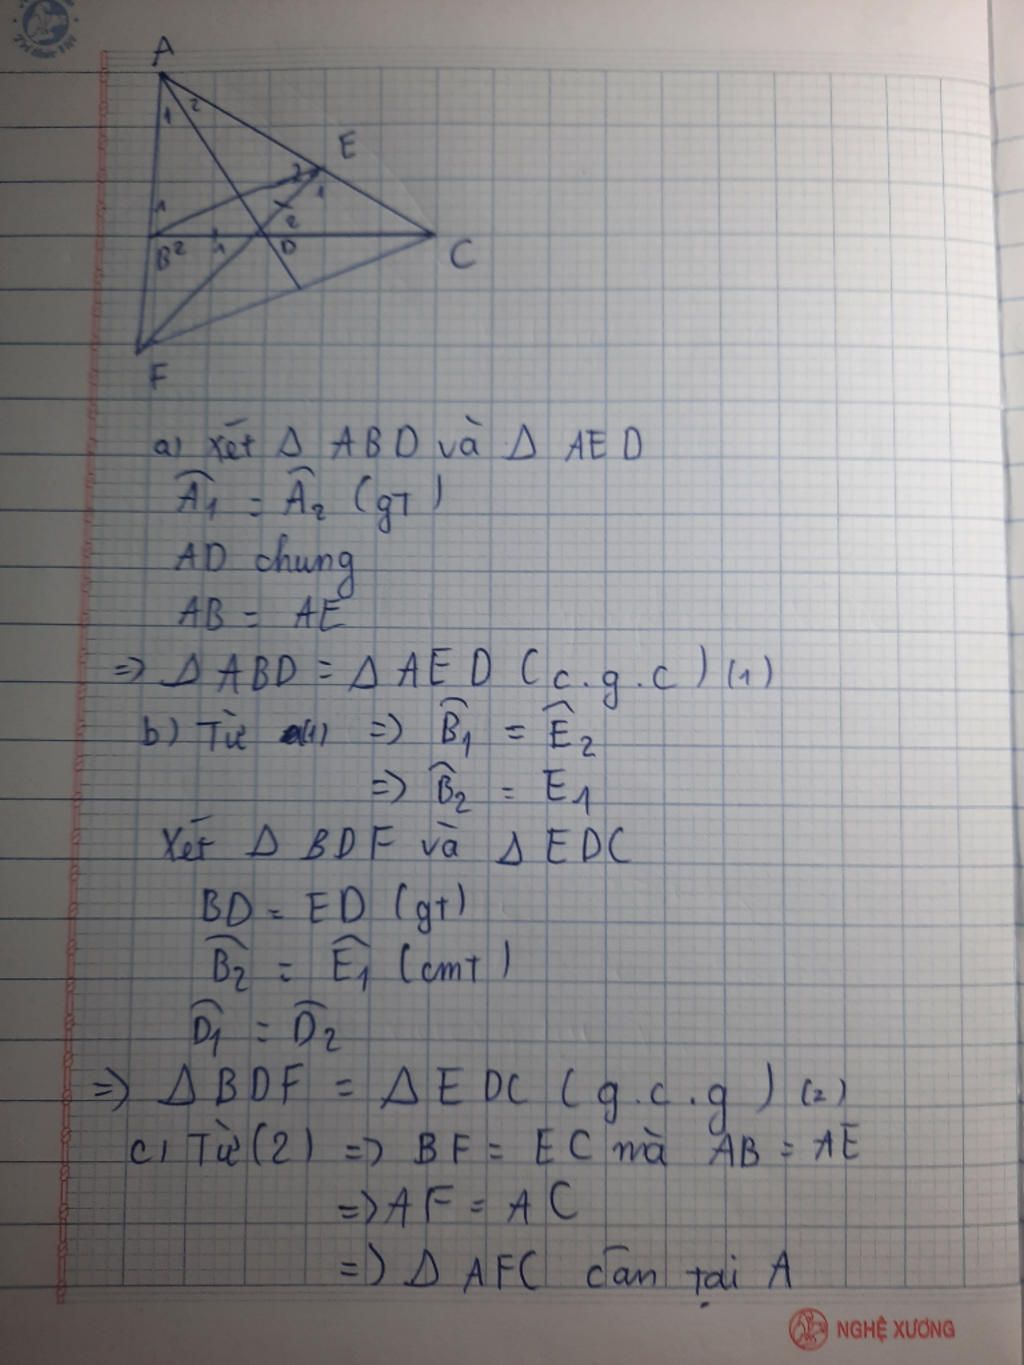 A
1 2
E
2 1
1 2
B 2 1 D C
F
a) Xét Δ ABD và Δ AED
Â1 = Â2 (gT)
AD chung
AB = AE
=> Δ ABD = Δ AED (c.g.c) (1)
b) Từ (1) => B̂1 = Ê2
=> B̂2 = E1
Xét Δ BDF và Δ EDC
BD = ED (gt)
B̂2 = Ê1 (cmt)
D̂1 = D̂2
=> Δ BDF = Δ EDC (g.c.g) (2)
c) Từ (2) => BF = EC mà AB = AE
=> AF = AC
=> Δ AFC cân tại A
NGHỆ XƯƠNG